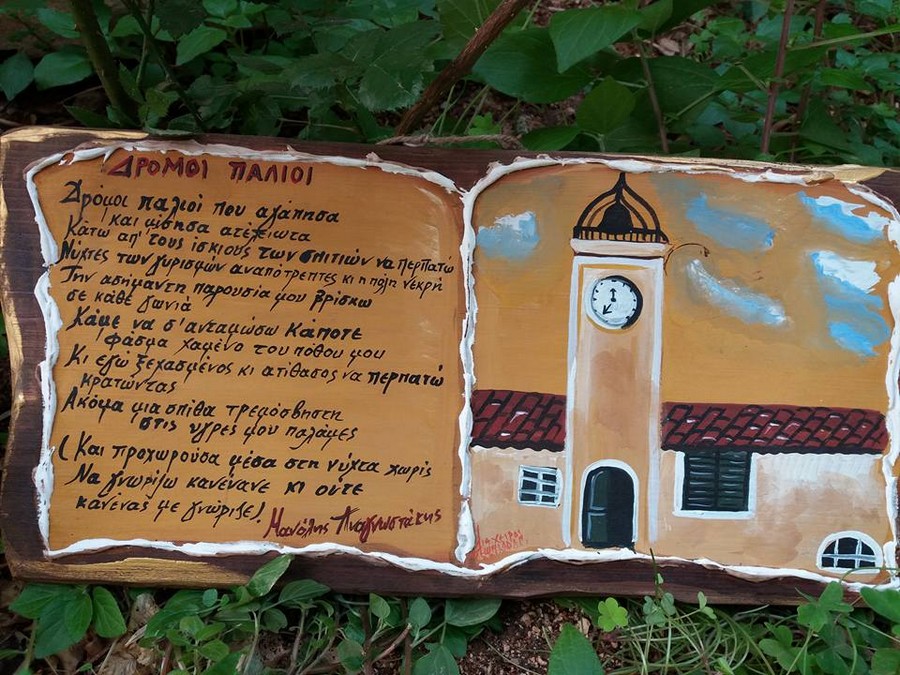 ΔΡΟΜΟΙ ΠΑΛΙΟΙ
Δρόμοι παλιοί που αγάπησα
και μίσησα ατέλειωτα
Κάτω απ' τους ίσκιους των σπιτιών να περπατώ
Νύχτες των γυρισμών αναπότρεπτες κι η πόλη νεκρή
Την ασήμαντη παρουσία μου βρίσκω
σε κάθε γωνιά
Κάμε να σ' ανταμώσω κάποτε
φάσμα χαμένο του πόθου μου
Κι εγώ ξεχασμένος κι ατίθασος να περπατώ
κρατώντας
Ακόμα μια σπίθα τρεμόσβηστη
στις υγρές μου παλάμες
(Και προχωρούσα μέσα στη νύχτα χωρίς
Να γνωρίζω κανένανε κι ούτε
κανένας με γνώριζε)
Μανόλης Αναγνωστάκης